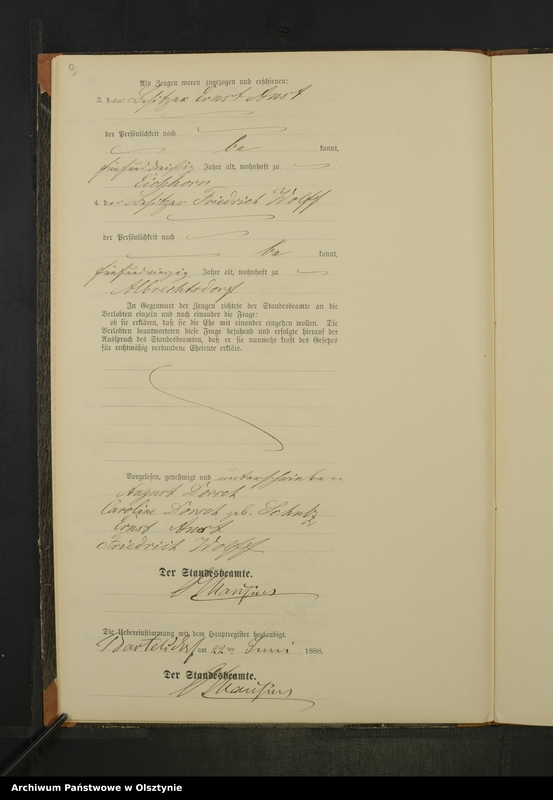 Als Zeugen waren zugezogen und erschienen:
3. der Besitzer Ernst Anst
der Persönlichkeit nach
be kannt,
fünfunddreißig Jahre alt, wohnhaft zu
Eichhorn
4. der Besitzer Friedrich Wolff
der Persönlichkeit nach
be kannt,
fünfundvierzig Jahre alt, wohnhaft zu
Albrechtsdorf
In Gegenwart der Zeugen richtete der Standesbeamte an die
Verlobten einzeln und nach einander die Frage:
ob sie erklären, daß sie die Ehe mit einander eingehen wollen. Die
Verlobten beantworteten diese Frage bejahend und erfolgte hierauf der
Ausspruch des Standesbeamten, daß er sie nunmehr kraft des Gesetzes
für rechtmäßig verbundene Eheleute erkläre.
Vorgelesen, genehmigt und unterschrieben
August
Caroline geb. Schulz
Ernst Anst
Friedrich Wolff
Der Standesbeamte.
Die Uebereinstimmung mit dem Hauptregister beglaubigt.
Bartelsdorf am 22ten Juni 1888.
Der Standesbeamte.
Archiwum Państwowe w Olsztynie